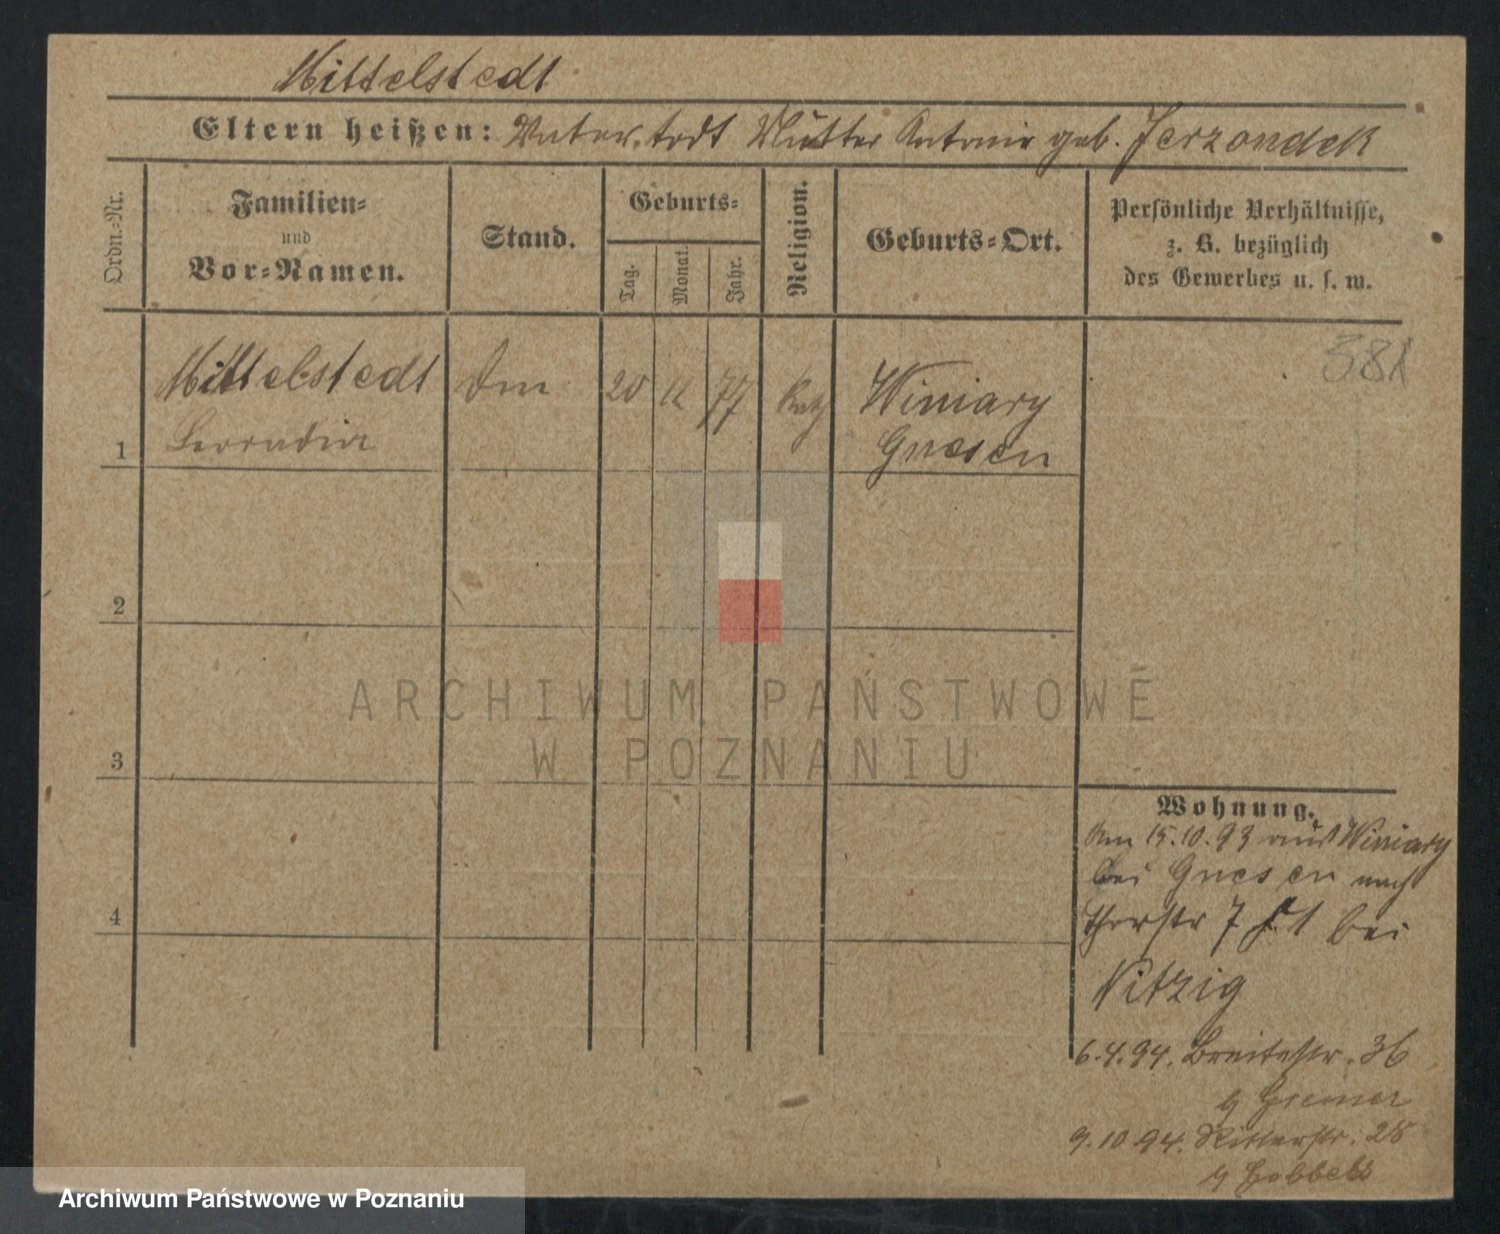 Mittelstedt
Eltern heißen: Vater. todt Mutter Antonie geb. Jerzondek
Ordn.-Nr.
Familien-
und
Vor-Namen.
Stand.
Geburts-
Tag.
Monat.
Jahr.
Religion.
Geburts-Ort.
Persönliche Verhältnisse,
z. B. bezüglich
des Gewerbes u. s. w.
381
Mittelstedt
20 77 Kath
Winiary
Gnesen
1
2
3
4
ARCHIWUM PAŃSTWOWE
W POZNANIU
Wohnung.
Am 15.10.93 aus Winiary
bei Gnesen nach
Thorstr 7 1 bei
Nitzig
6.4.94. Breitestr. 36
9.10.94. Ritterstr. 28
Archiwum Państwowe w Poznaniu